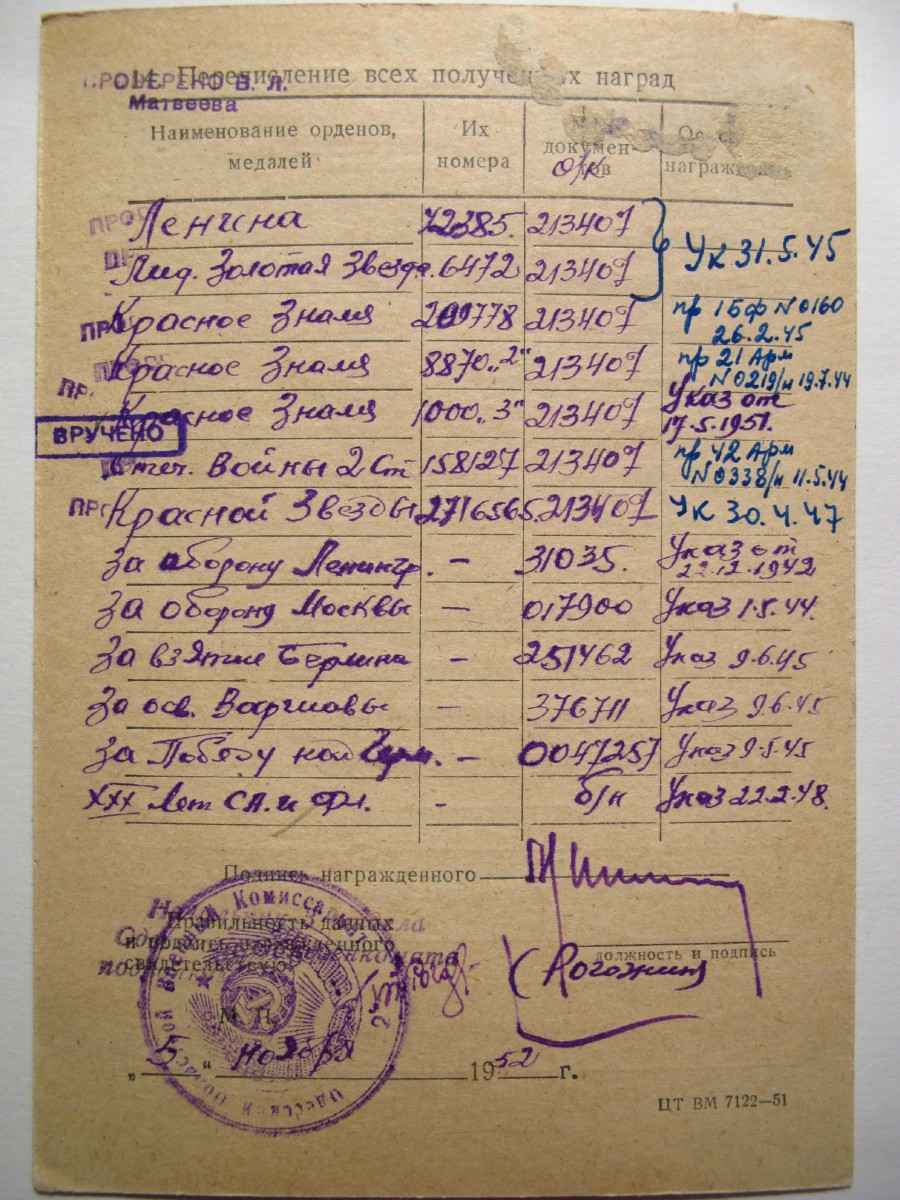 14. Перечисление всех полученных наград
ПРОВЕРЕНО В. Л.
Матвеева
Наименование орденов, медалей Их номера документов о/к награждении
Ленина 213407
Мед. Золотая Звезда 6472 213407 Ук 31.5.45
Красное Знамя 209778 213407 пр 1БФ N 0160 26.2.45
Красное Знамя 8870 „2" 213407 пр 21 Арм N 0219/н 19.7.44
Красное Знамя 1000 „3" 213407 Указ от 17.5.1951.
ВРУЧЕНО
Отеч. Войны 2 Ст 158127 213407 пр 42 Арм N 0338/н 11.5.44
Красной Звезды 2716565 213407 Ук 30.4.47
За оборону Ленингр. – 31035. Указ от 22.12.1942
За оборону Москвы – 017900 Указ 1.5.44.
За взятие Берлина – 251462 Указ 9.6.45
За осв. Варшавы – 376711 Указ 9.6.45
За Победу над Герм. – 0047257 Указ 9.5.45
XXX Лет СА и Фл. - б/н Указ 22.2.48.
Подпись награжденного
Правильность данных
и подпись награжденного
свидетельствую
должность и подпись
(Рогожина
М. П.
„ 5 " ноября 1952 г.
ЦТ ВМ 7122—51